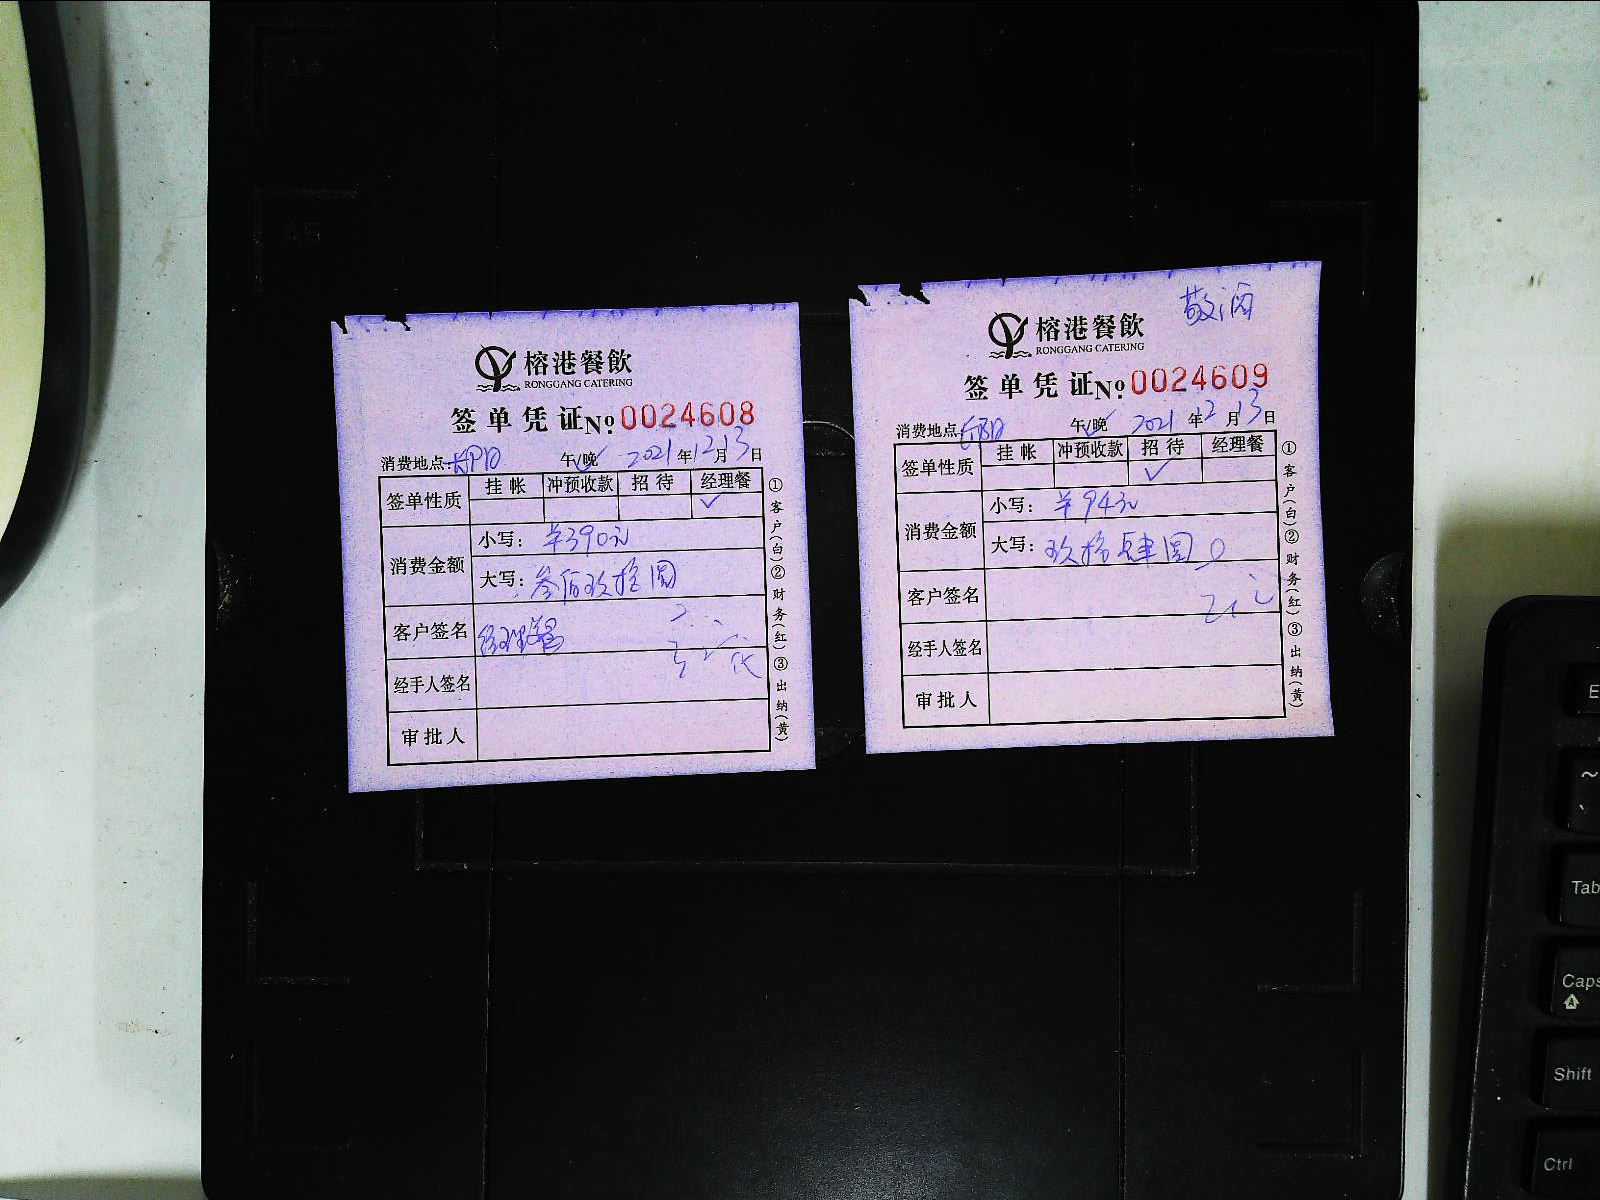 榕港餐飲
RONGGANG CATERING
签单凭证 No. 0024608
消费地点 午/晚 2021年12月13日
签单性质 挂帐 冲预收款 招待 经理餐
✓
消费金额 小写: ¥390元
大写: 叁佰玖拾圆
客户签名 经理餐
经手人签名
审批人
①客户(白)②财务(红)③出纳(黄)
敬酒
榕港餐飲
RONGGANG CATERING
签单凭证 No. 0024609
消费地点 午/晚 2021年12月13日
签单性质 挂帐 冲预收款 招待 经理餐
✓
消费金额 小写: ¥94元
大写: 玖拾肆圆
客户签名
经手人签名
审批人
①客户(白)②财务(红)③出纳(黄)
A4
A5
E
~
Tab
Caps
Shift
Ctrl